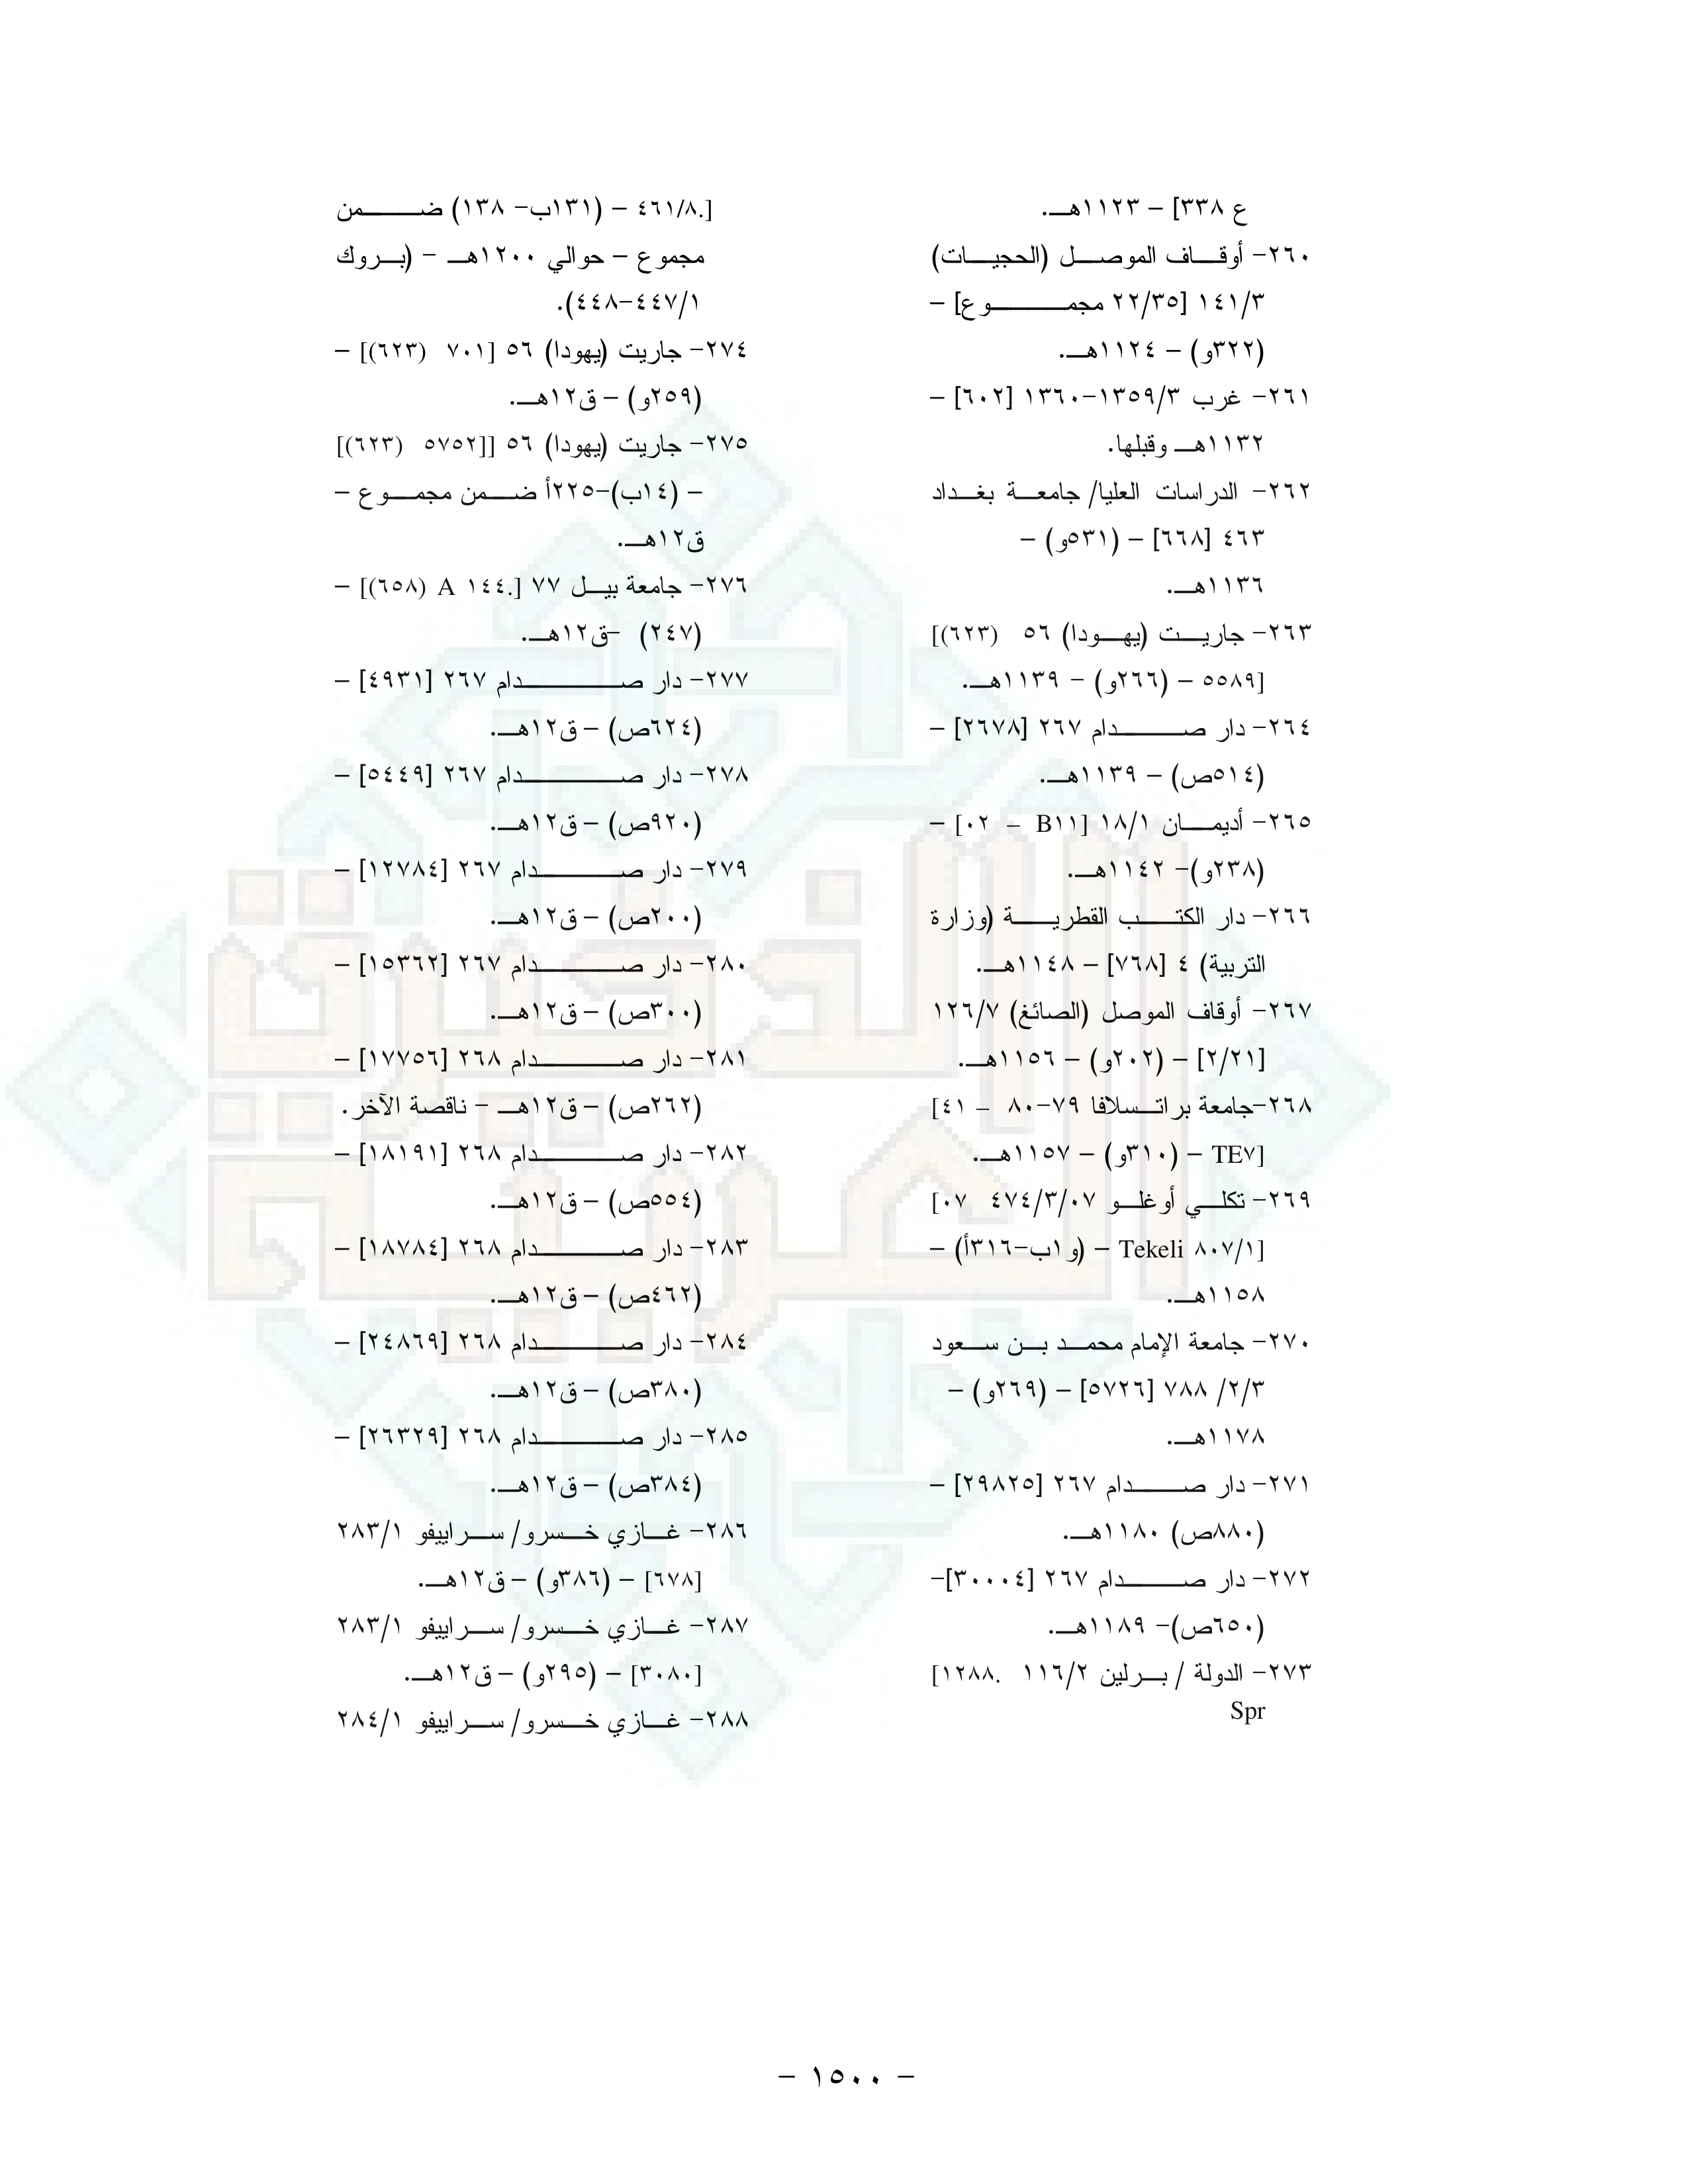 ع ٣٣٨] – ١١٢٣هـ.
٢٦٠- أوقاف الموصل (الحجيات)
١٤١/٣ [٢٢/٣٥ مجموع] –
(٣٢٢و) – ١١٢٤هـ.
٢٦١- غرب ١٣٥٩/٣-١٣٦٠ [٦٠٢] –
١١٣٢هـ وقبلها.
٢٦٢- الدراسات العليا/ جامعة بغداد
٤٦٣ [٦٦٨] – (٥٣١و) –
١١٣٦هـ.
٢٦٣- جاريت (يهودا) ٥٦ (٦٢٣)]
[٥٥٨٩ – (٢٦٦و) – ١١٣٩هـ.
٢٦٤- دار صدام ٢٦٧ [٢٦٧٨] –
(٥١٤ص) – ١١٣٩هـ.
٢٦٥- أديمان ١٨/١ [B١١ – ٠٢] –
(٢٣٨و)- ١١٤٢هـ.
٢٦٦- دار الكتب القطرية (وزارة
التربية) ٤ [٧٦٨] – ١١٤٨هـ.
٢٦٧- أوقاف الموصل (الصائغ) ١٢٦/٧
[٢/٢١] – (٢٠٢و) – ١١٥٦هـ.
٢٦٨-جامعة براتسلافا ٧٩-٨٠ – ٤١]
[TE٧ – (٣١٠و) – ١١٥٧هـ.
٢٦٩- تكلي أوغلو ٤٧٤/٣/٠٧ ٠٧]
[Tekeli ٨٠٧/١ – (و١ب-٣١٦أ) –
١١٥٨هـ.
٢٧٠- جامعة الإمام محمد بن سعود
٢/٣/ ٧٨٨ [٥٧٢٦] – (٢٦٩و) –
١١٧٨هـ.
٢٧١- دار صدام ٢٦٧ [٢٩٨٢٥] –
(٨٨٠ص) ١١٨٠هـ.
٢٧٢- دار صدام ٢٦٧ [٣٠٠٠٤]-
(٦٥٠ص)- ١١٨٩هـ.
٢٧٣- الدولة / برلين ١١٦/٢ .١٢٨٨]
Spr
[.٤٦١/٨ – (١٣١ب- ١٣٨) ضمن
مجموع – حوالي ١٢٠٠هـ – (بروك
٤٤٧/١-٤٤٨).
٢٧٤- جاريت (يهودا) ٥٦ [٧٠١ (٦٢٣)] –
(٢٥٩و) – ق١٢هـ.
٢٧٥- جاريت (يهودا) ٥٦ [[٥٧٥٢ (٦٢٣)]
– (١٤ب)-٢٢٥أ ضمن مجموع –
ق١٢هـ.
٢٧٦- جامعة بيل ٧٧ [.١٤٤ A (٦٥٨)] –
(٢٤٧) -ق١٢هـ.
٢٧٧- دار صدام ٢٦٧ [٤٩٣١] –
(٦٢٤ص) – ق١٢هـ.
٢٧٨- دار صدام ٢٦٧ [٥٤٤٩] –
(٩٢٠ص) – ق١٢هـ.
٢٧٩- دار صدام ٢٦٧ [١٢٧٨٤] –
(٢٠٠ص) – ق١٢هـ.
٢٨٠- دار صدام ٢٦٧ [١٥٣٦٢] –
(٣٠٠ص) – ق١٢هـ.
٢٨١- دار صدام ٢٦٨ [١٧٧٥٦] –
(٢٦٢ص) – ق١٢هـ – ناقصة الآخر.
٢٨٢- دار صدام ٢٦٨ [١٨١٩١] –
(٥٥٤ص) – ق١٢هـ.
٢٨٣- دار صدام ٢٦٨ [١٨٧٨٤] –
(٤٦٢ص) – ق١٢هـ.
٢٨٤- دار صدام ٢٦٨ [٢٤٨٦٩] –
(٣٨٠ص) – ق١٢هـ.
٢٨٥- دار صدام ٢٦٨ [٢٦٣٢٩] –
(٣٨٤ص) – ق١٢هـ.
٢٨٦- غازي خسرو/ سراييفو ٢٨٣/١
[٦٧٨] – (٣٨٦و) – ق١٢هـ.
٢٨٧- غازي خسرو/ سراييفو ٢٨٣/١
[٣٠٨٠] – (٢٩٥و) – ق١٢هـ.
٢٨٨- غازي خسرو/ سراييفو ٢٨٤/١
– ١٥٠٠ –